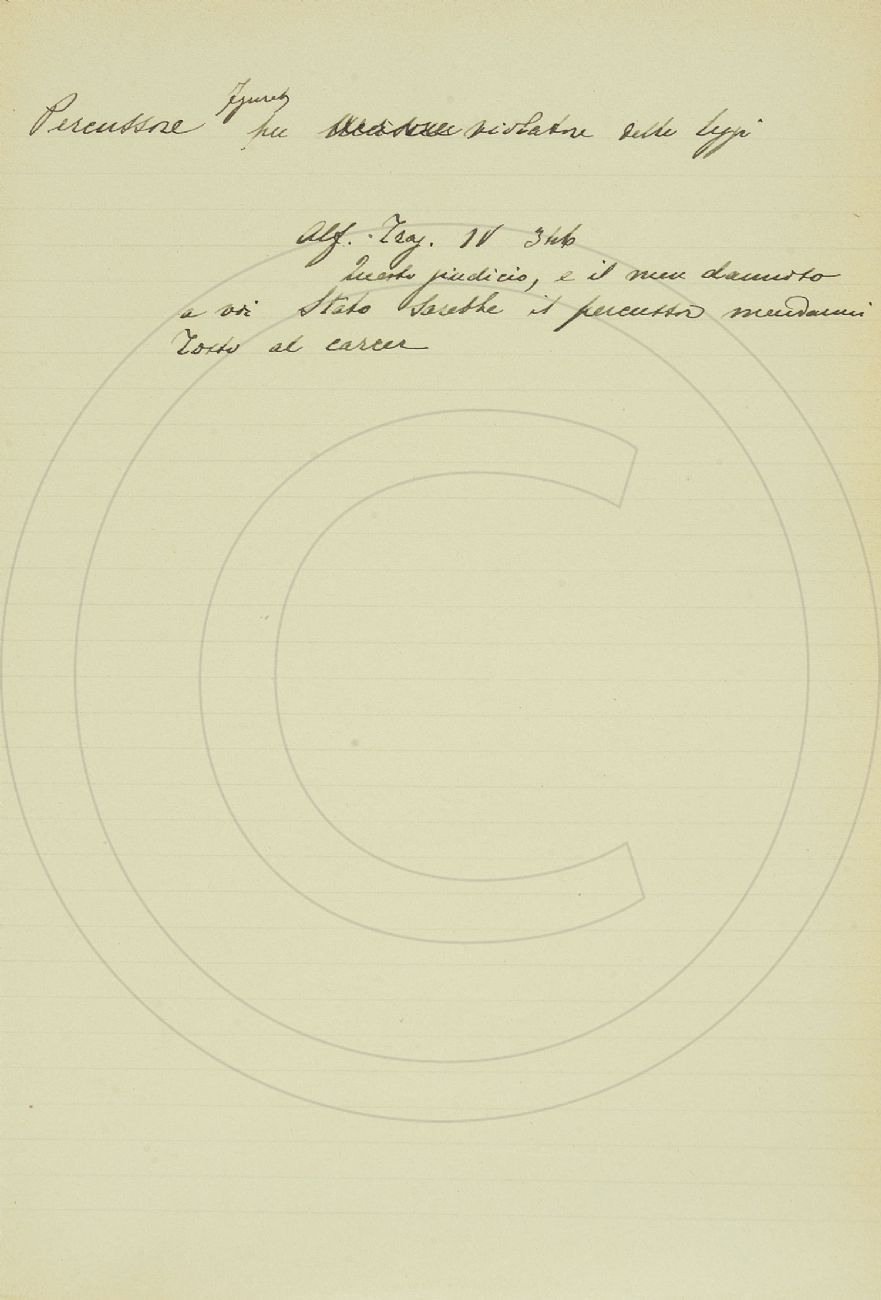 Percussore figurat per violatore delle leggi
Alf. Trag. IV
Questo giudicio, e il men dannoso
a voi Stato Sarebbe il percussor mendarmi
Tosto al carcer